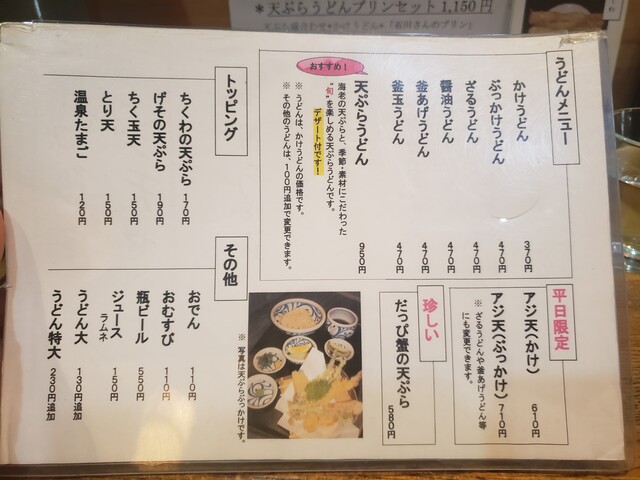 ＊天ぷらうどんプリンセット 1,150円
うどんメニュー
かけうどん 370円
ぶっかけうどん 470円
ざるうどん 470円
醤油うどん 470円
釜あげうどん 470円
釜玉うどん 470円
おすすめ！
天ぷらうどん 950円
海老の天ぷらと、季節・素材にこだわった
“旬”を楽しめる天ぷらうどんです。
デザート付です！
※ うどんは、かけうどんの価格です。
※ その他のうどんは、100円追加で変更できます。
トッピング
ちくわの天ぷら 170円
げその天ぷら 190円
ちく玉天 150円
とり天 150円
温泉たまご 120円
平日限定
アジ天(かけ) 610円
アジ天(ぶっかけ) 710円
※ ざるうどんや釜あげうどん等
にも変更できます。
珍しい
だっぴ蟹の天ぷら 580円
※ 写真は天ぷらぶっかけです。
その他
おでん 110円
おむすび 110円
瓶ビール 550円
ジュース 150円
ラムネ
うどん大 130円追加
うどん特大 230円追加